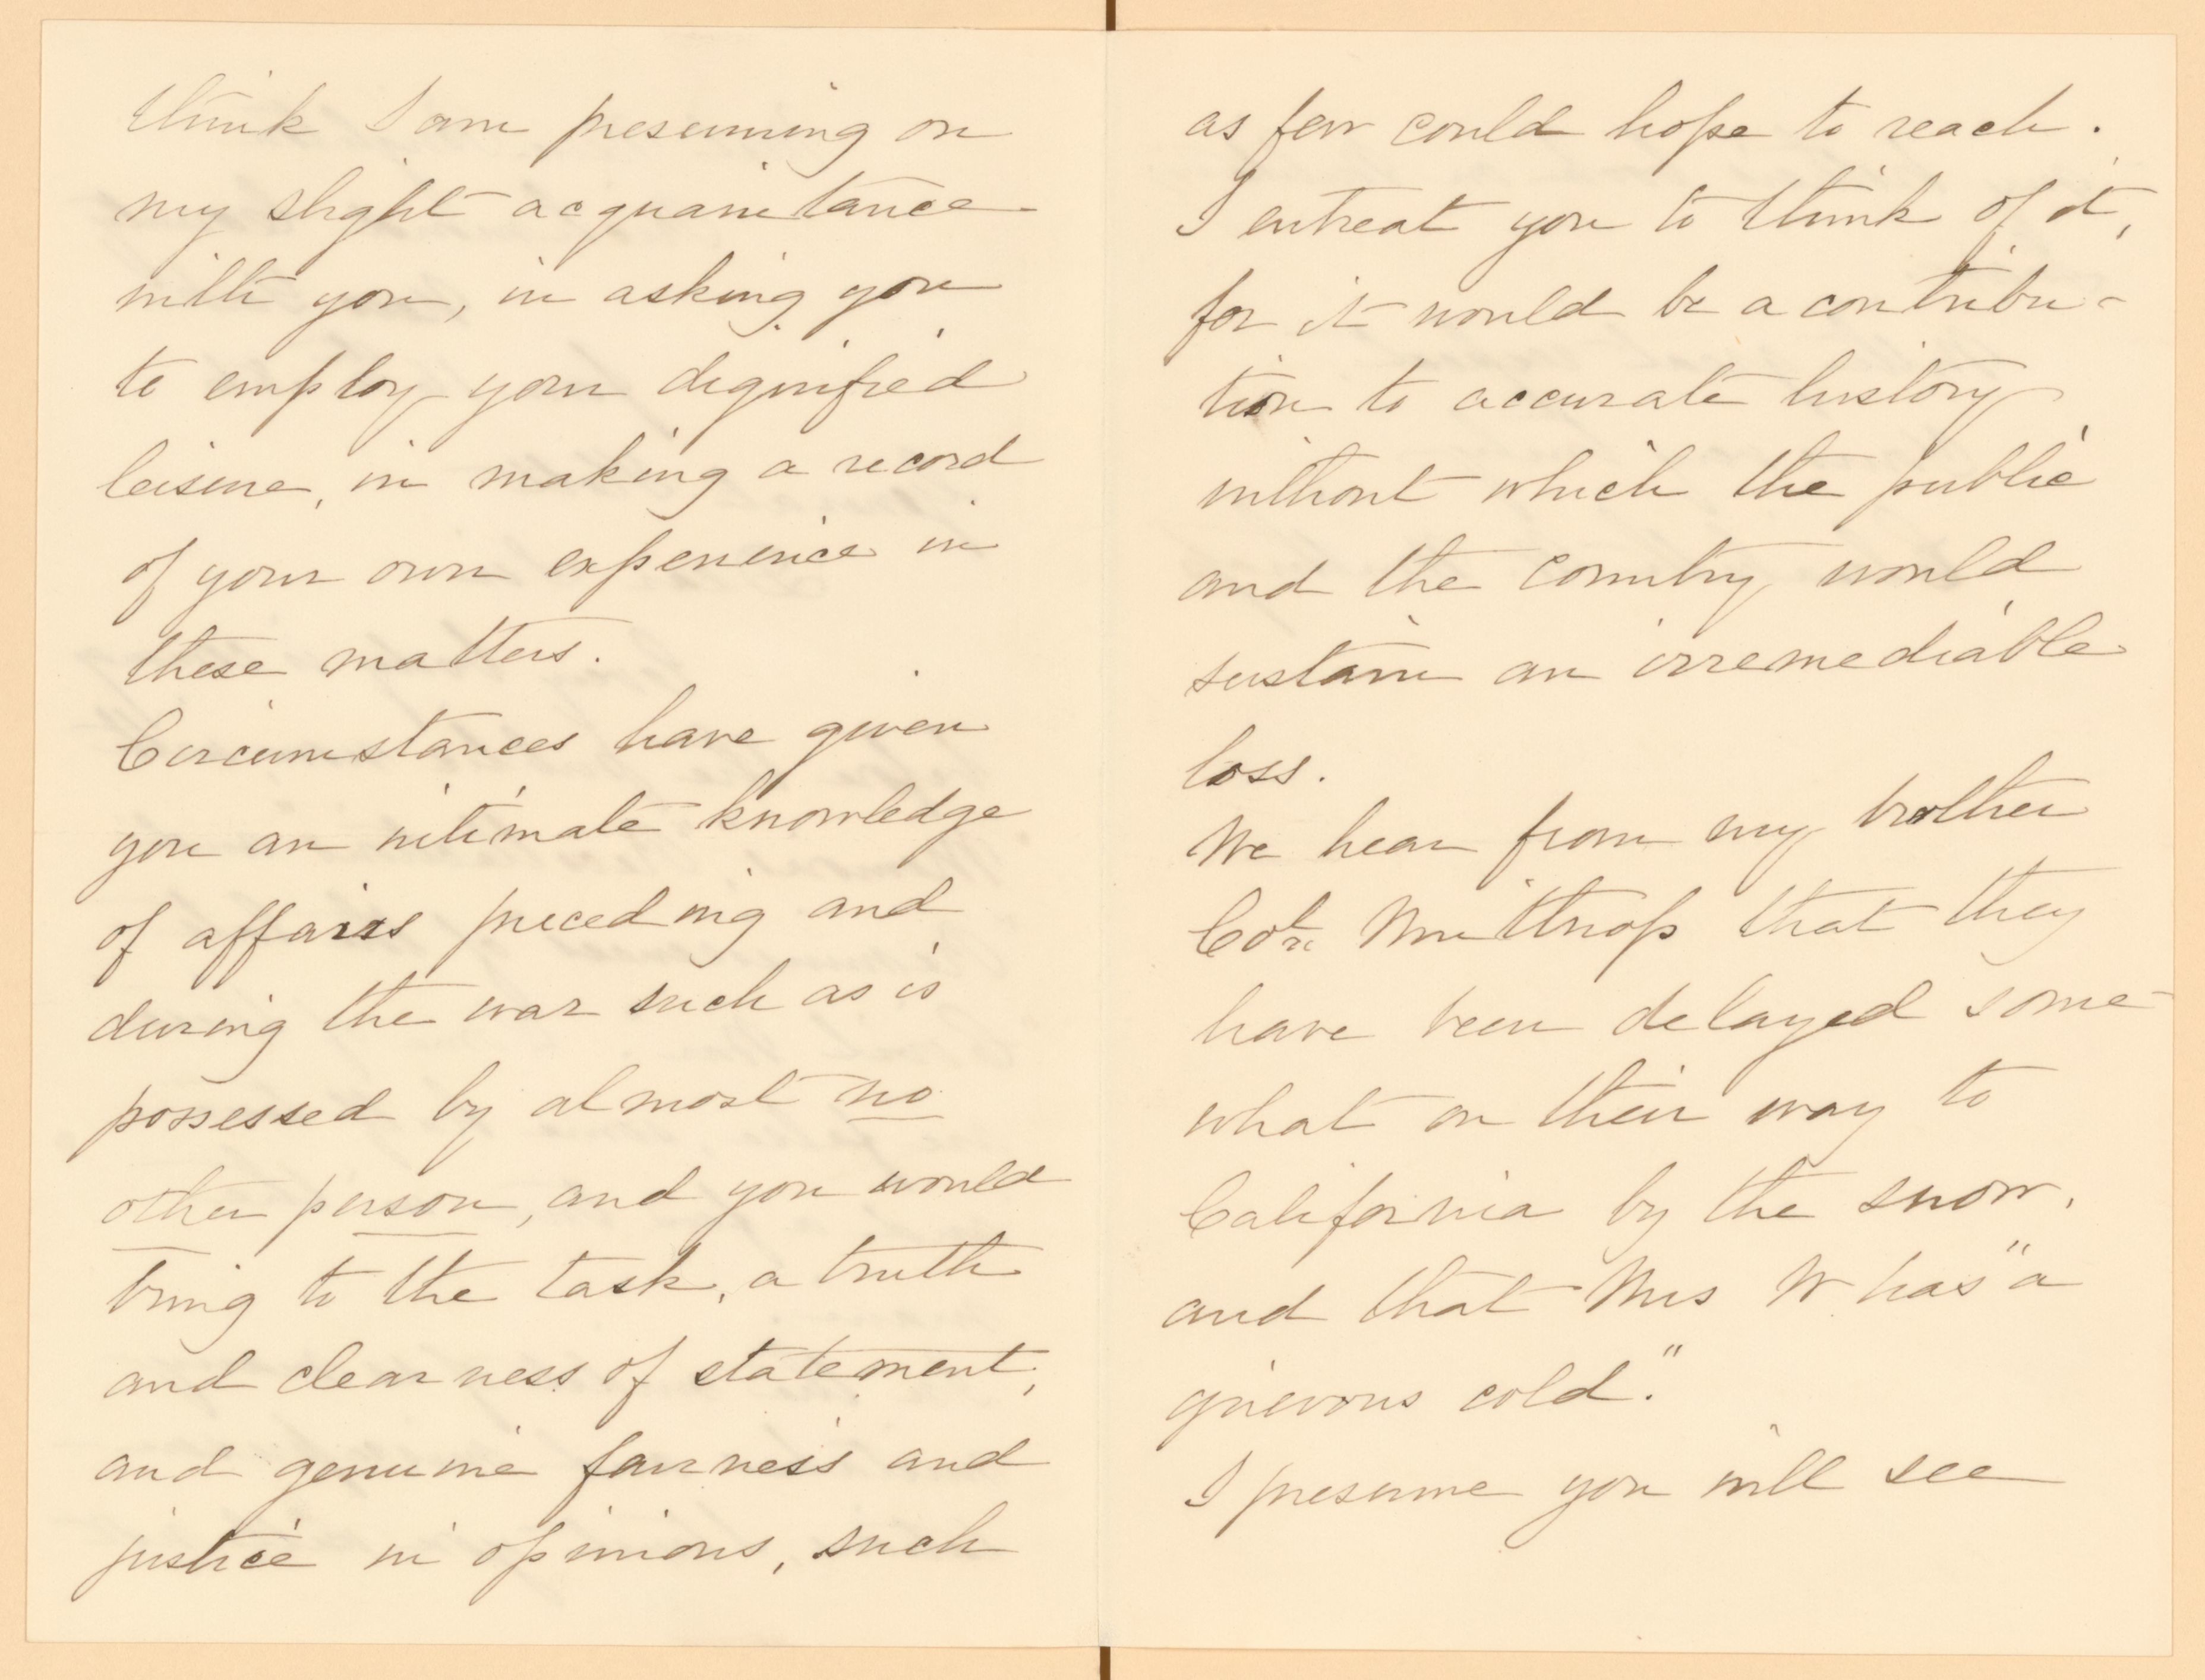 think I am presuming on
my slight acquaintance
with you, in asking you
to employ your dignified
leisure, in making a record
of your own experience in
these matters.
Circumstances have given
you an intimate knowledge
of affairs preceding and
during the war such as is
possessed by almost no
other person, and you would
bring to the task, a truth
and clearness of statement,
and genuine fairness and
justice in opinions, such
as few could hope to reach.
I entreat you to think of it,
for it would be a contribu-
tion to accurate history
without which the public
and the country would
sustain an irremediable
loss.
We hear from my brother
Col. Winthrop that they
have been delayed some-
what on their way to
California by the snow,
and that Mrs W. has "a
grievous cold."
I presume you will see